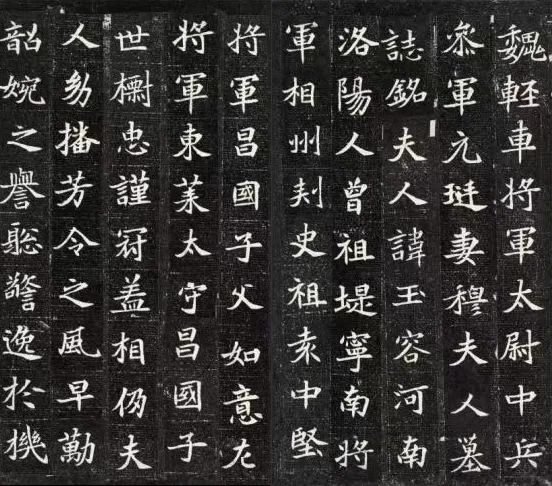 魏輕車將軍太尉中兵
叅軍元珽妻穆夫人墓
誌銘夫人諱玉容河南
洛陽人曾祖堤寧南將
軍相州刾史祖袁中堅
將軍昌國子父如意左
將軍東萊太守昌國子
世𣝗忠謹冠盖相仍夫
人㓜播芳令之風早勱
韶婉之譽聡警逸於機